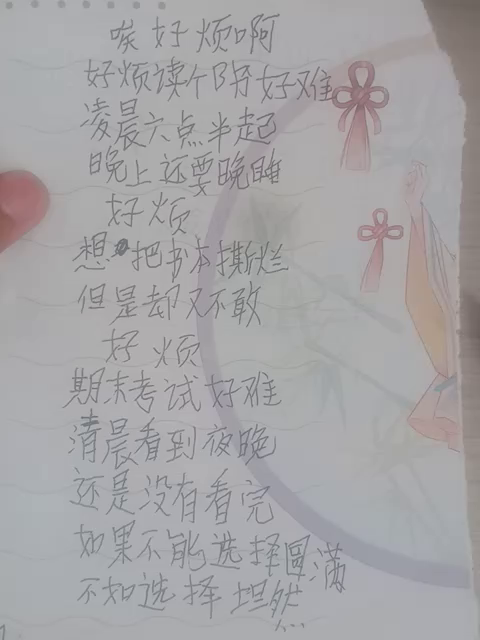 唉好烦啊
好烦读个阴好难
凌晨六点半起
晚上还要晚睡
好烦
想把书本撕烂
但是却又不敢
好烦
期末考试好难
清晨看到夜晚
还是没有看完
如果不能选择圆满
不如选择坦然